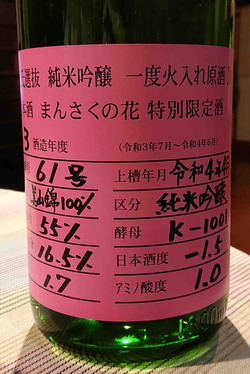 選抜 純米吟醸 一度火入れ原酒
酒 まんさくの花 特別限定酒
3 酒造年度 (令和3年7月〜令和4年6月)
61号 上槽年月 令和4年
美山錦100% 区分 純米吟醸
55% 酵母 K-1001
16.5% 日本酒度 -1.5
1.7 アミノ酸度 1.0